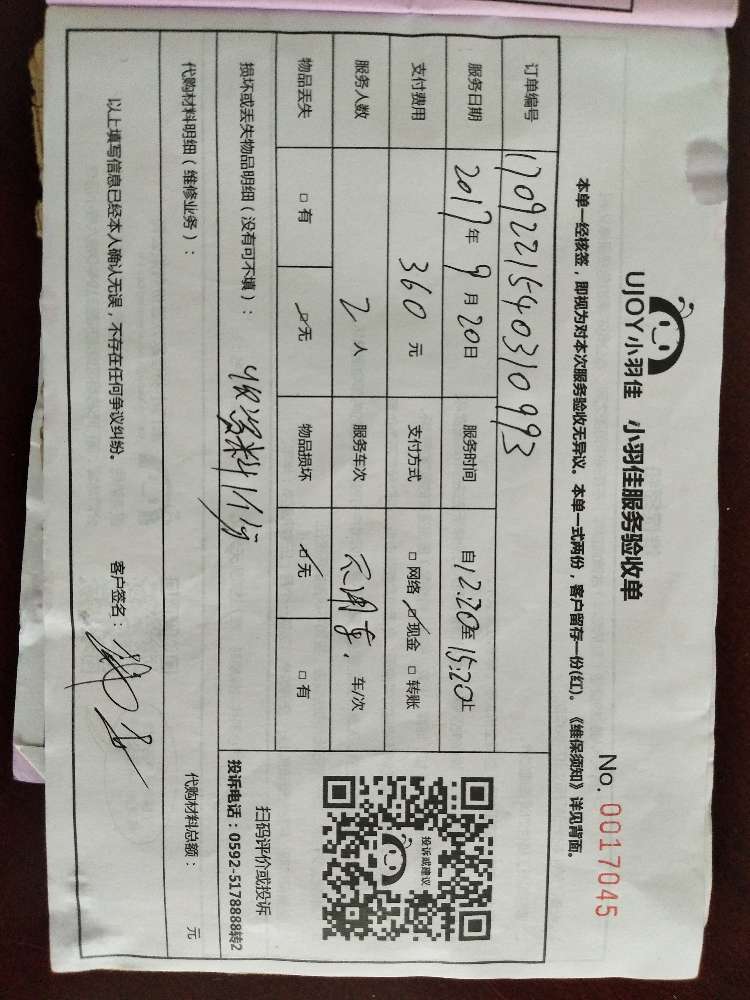 UJOY小羽佳 小羽佳服务验收单
No. 0017045
本单一经核签，即视为对本次服务验收无异议。本单一式两份，客户留存一份(红)。《维保须知》详见背面。
订单编号 170922154031 0993
服务日期 2017年9月20日 服务时间 自12:20至15:20止
支付费用 360元 支付方式 □网络 ☑现金 □转账
服务人数 2人 服务车次 不用车. 车/次
物品丢失 □有 ☑无 物品损坏 ☑无 □有
损坏或丢失物品明细（没有可不填）：
代购材料明细（维修业务）： 代购材料总额： 元
以上填写信息已经本人确认无误，不存在任何争议纠纷。 客户签名：
投诉或建议
扫码评价或投诉
投诉电话：0592-5178888转2